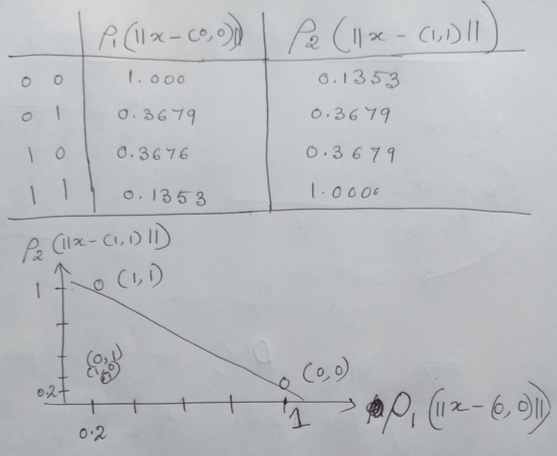 ρ₁(||x-(0,0)|| ρ₂ (||x-(1,1)||)
0 0 1.000 0.1353
0 1 0.3679 0.3679
1 0 0.3676 0.3679
1 1 0.1353 1.0000
ρ₂ (||x-(1,1)||)
1 (1,1)
(0,1)
(0,0)
0.2
0.2 1 ρ₁ (||x-(0,0)||)